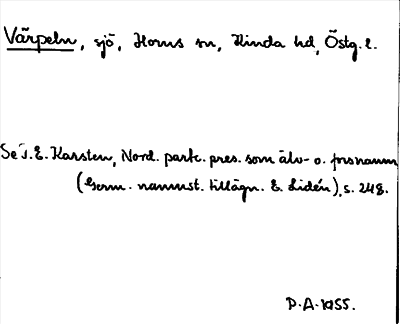 Värpeln, sjö, Horns sn, Kinda hd, Östg. l.
Se T. E. Karsten, Nord. partc. pres. som älv- o. forsnamn
(Germ. namnst. tillägn. E. Lidén), s. 248.
P.A. 1955.